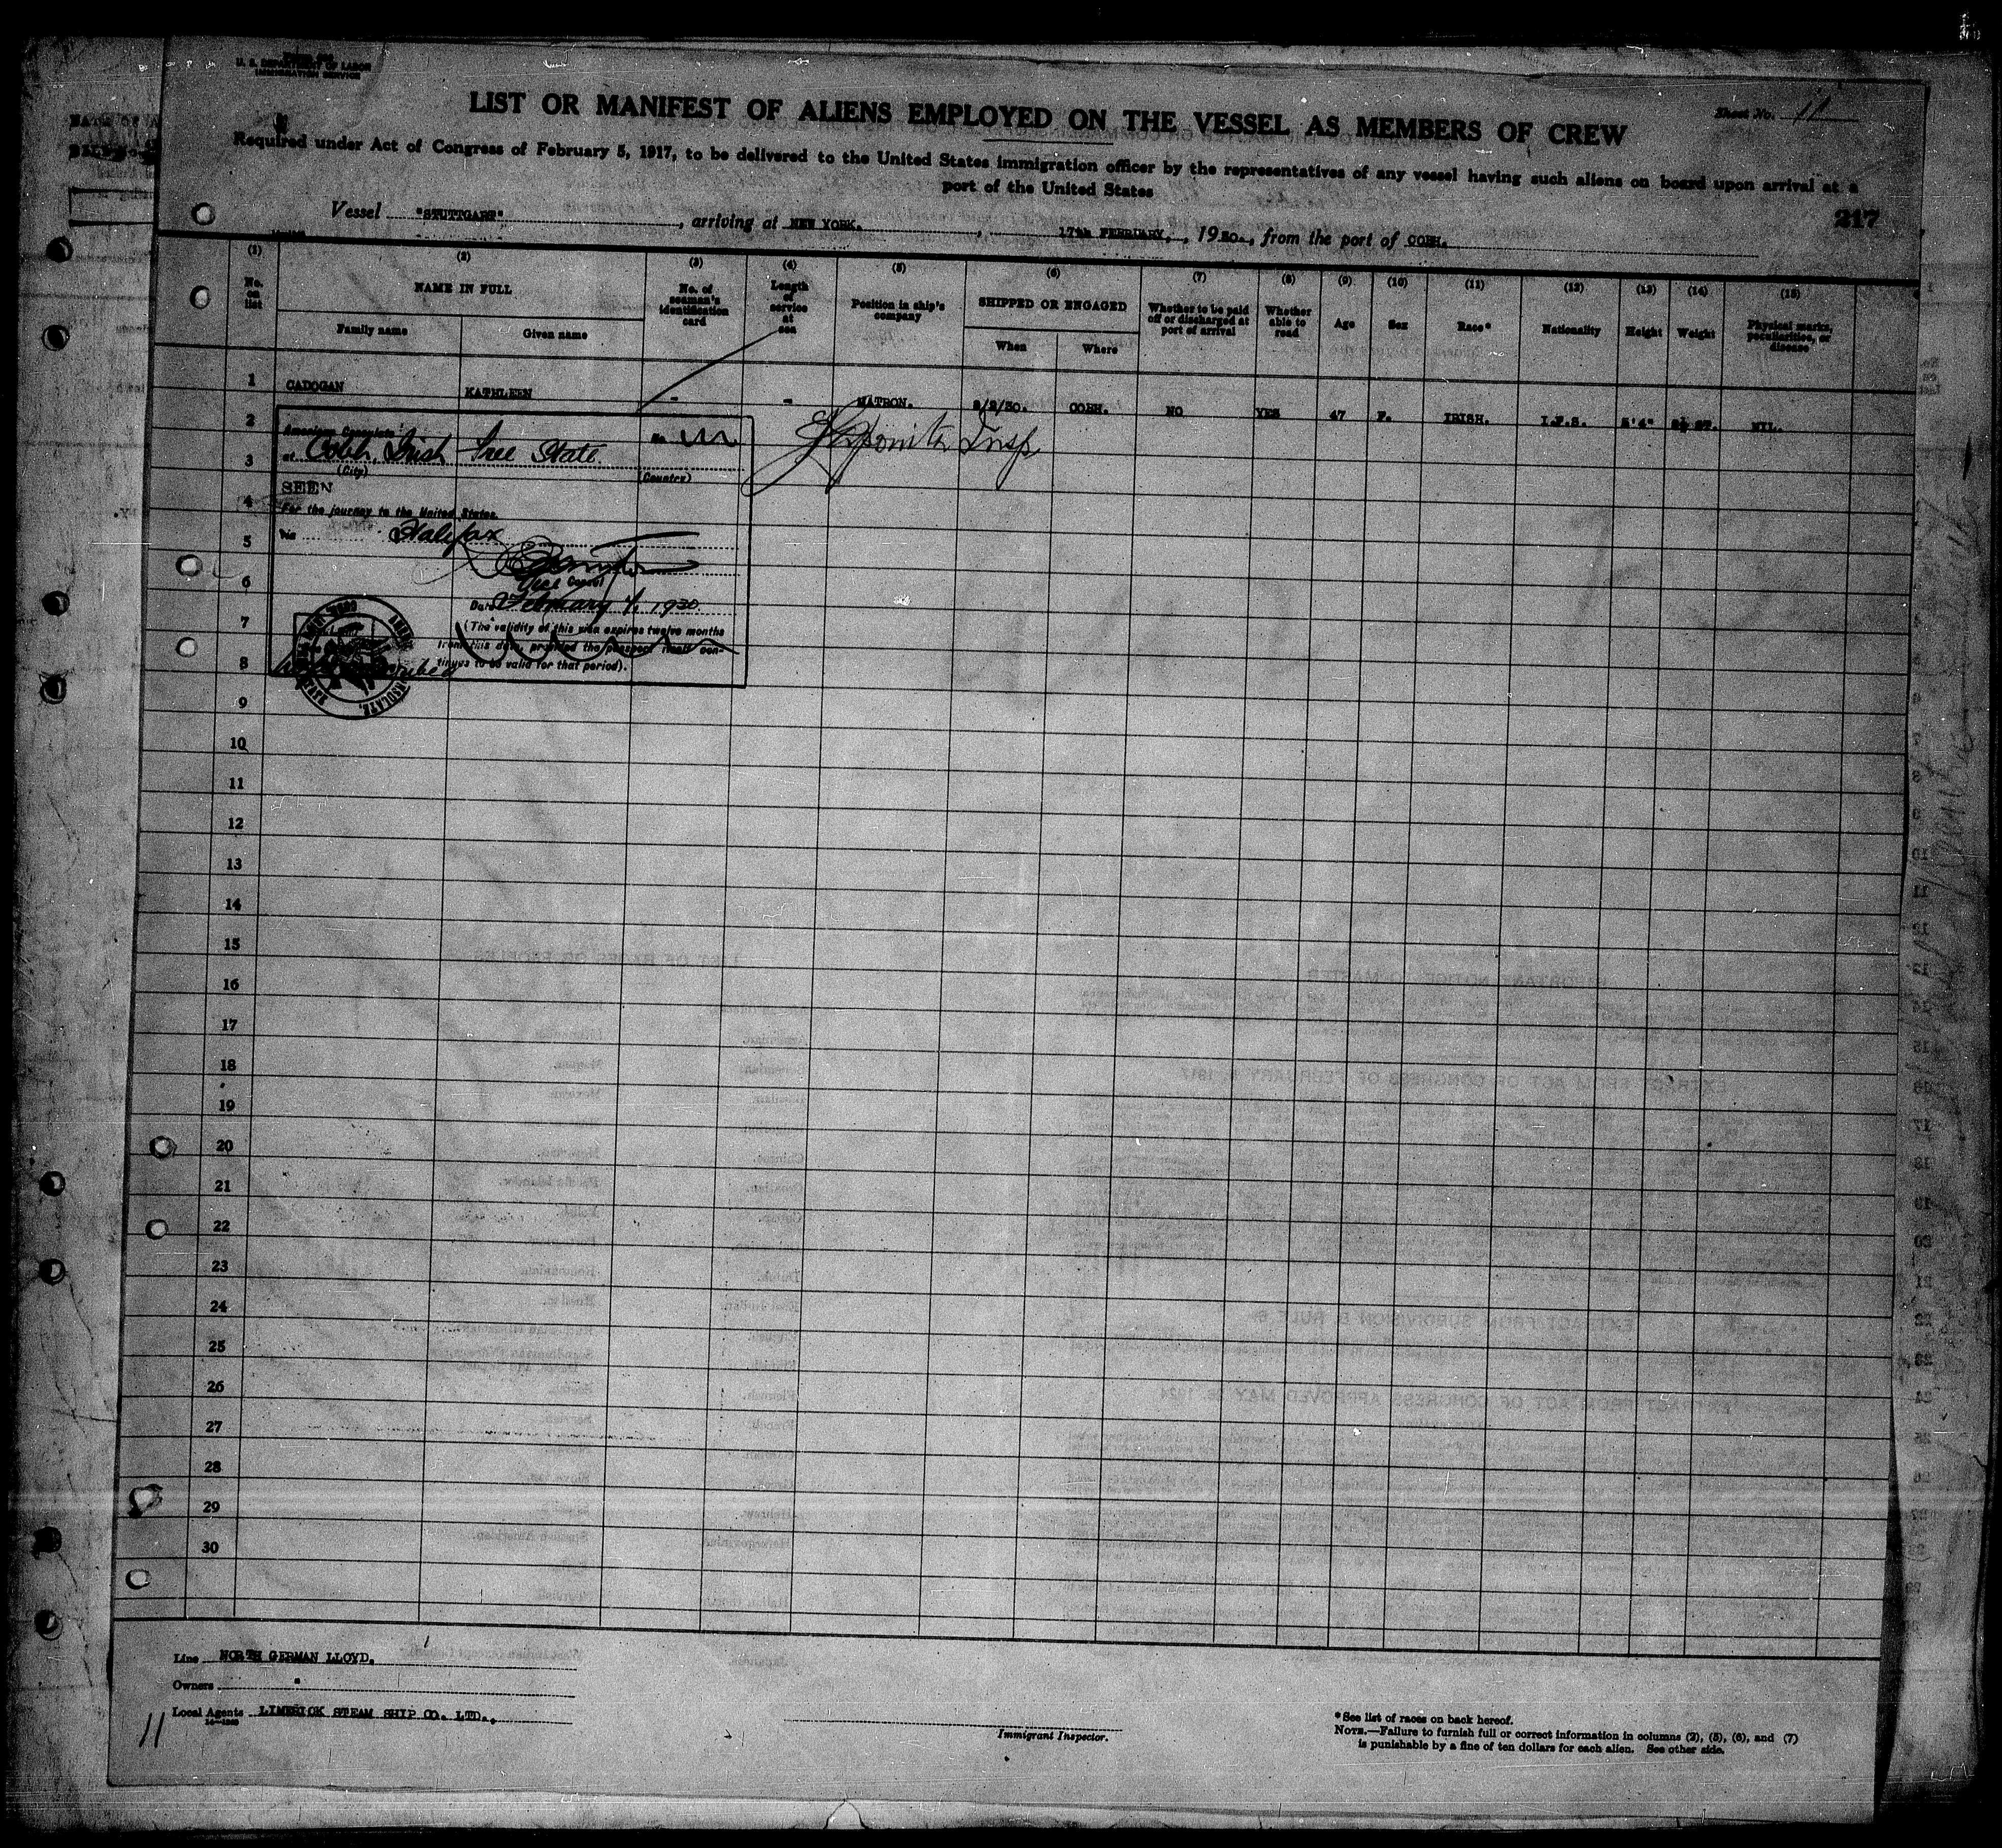 U. S. DEPARTMENT OF LABOR
IMMIGRATION SERVICE
Sheet No. 11
LIST OR MANIFEST OF ALIENS EMPLOYED ON THE VESSEL AS MEMBERS OF CREW
Required under Act of Congress of February 5, 1917, to be delivered to the United States immigration officer by the representatives of any vessel having such aliens on board upon arrival at a
port of the United States
217
Vessel "STUTTGART", arriving at NEW YORK., 17th FEBRUARY, 1930., from the port of COBH.
(1) (2) (3) (4) (5) (6) (7) (8) (9) (10) (11) (12) (13) (14) (15)
No. on list
NAME IN FULL
Family name
Given name
No. of seaman's identification card
Length of service at sea
Position in ship's company
SHIPPED OR ENGAGED
When
Where
Whether to be paid off or discharged at port of arrival
Whether able to read
Age
Sex
Race*
Nationality
Height
Weight
Physical marks, peculiarities, or disease
1 CADOGAN KATHLEEN - - MATRON. COBH. NO YES 47 F. IRISH. I.F.S. 5'4" NIL.
2
American Consulate
No.
3
at Cobh, Irish Free State
(City) (Country)
SEEN
4
For the journey to the United States.
5
Via Halifax
6
Vice Consul
Date February 1930.
7
(The validity of this visa expires twelve months
from this date, provided the passport itself con-
8
tinues to be valid for that period).
9
10
11
12
13
14
15
16
17
18
19
20
21
22
23
24
25
26
27
28
29
30
Line NORTH GERMAN LLOYD.
Owners "
Local Agents LIMERICK STEAM SHIP CO. LTD.,
11
Immigrant Inspector.
* See list of races on back hereof.
NOTE.—Failure to furnish full or correct information in columns (2), (5), (6), and (7)
is punishable by a fine of ten dollars for each alien. See other side.